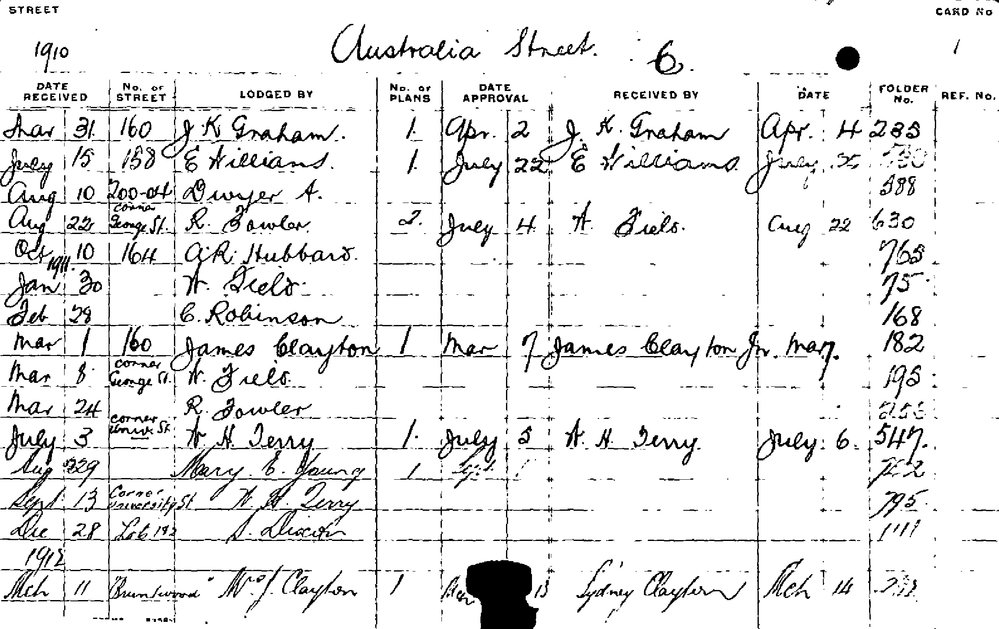 STREET CARD No
1910 Australia Street. 6. 1
DATE RECEIVED No. OF STREET LODGED BY No. OF PLANS DATE APPROVAL RECEIVED BY DATE FOLDER No. REF. No.
Mar 31 160 J K Graham. 1. Apr. 2 J. K. Graham Apr. 4 235
July 15 158 E Williams. 1. July 22 E Williams July
Aug 10 200-04 Dwyer A. 588
Aug 22 corner George St. R. Fowler. 2. July 4 W. Field. Aug 22 630
Oct 10 164 A.R. Hubbard. 765
1911.
Jan 30 W. Field 75
Feb 28 C. Robinson 168
Mar 1 160 James Clayton 1 Mar 7 James Clayton Jn. Mar 7. 182
Mar 8 corner George St. W. Field. 195
Mar 24 R. Fowler
July 3 corner Univ. St. W H Terry 1. July 5 W. H. Terry July 6. 547.
Aug 29 Mary E. Young 1 Sept
Sept 13 Corner University St W. H. Terry 795
Dec 28 Lot S. Dixon 1111
1912
Mch 11 "Brunswood" Mrs J. Clayton 1 13 Sydney Clayton Mch 14